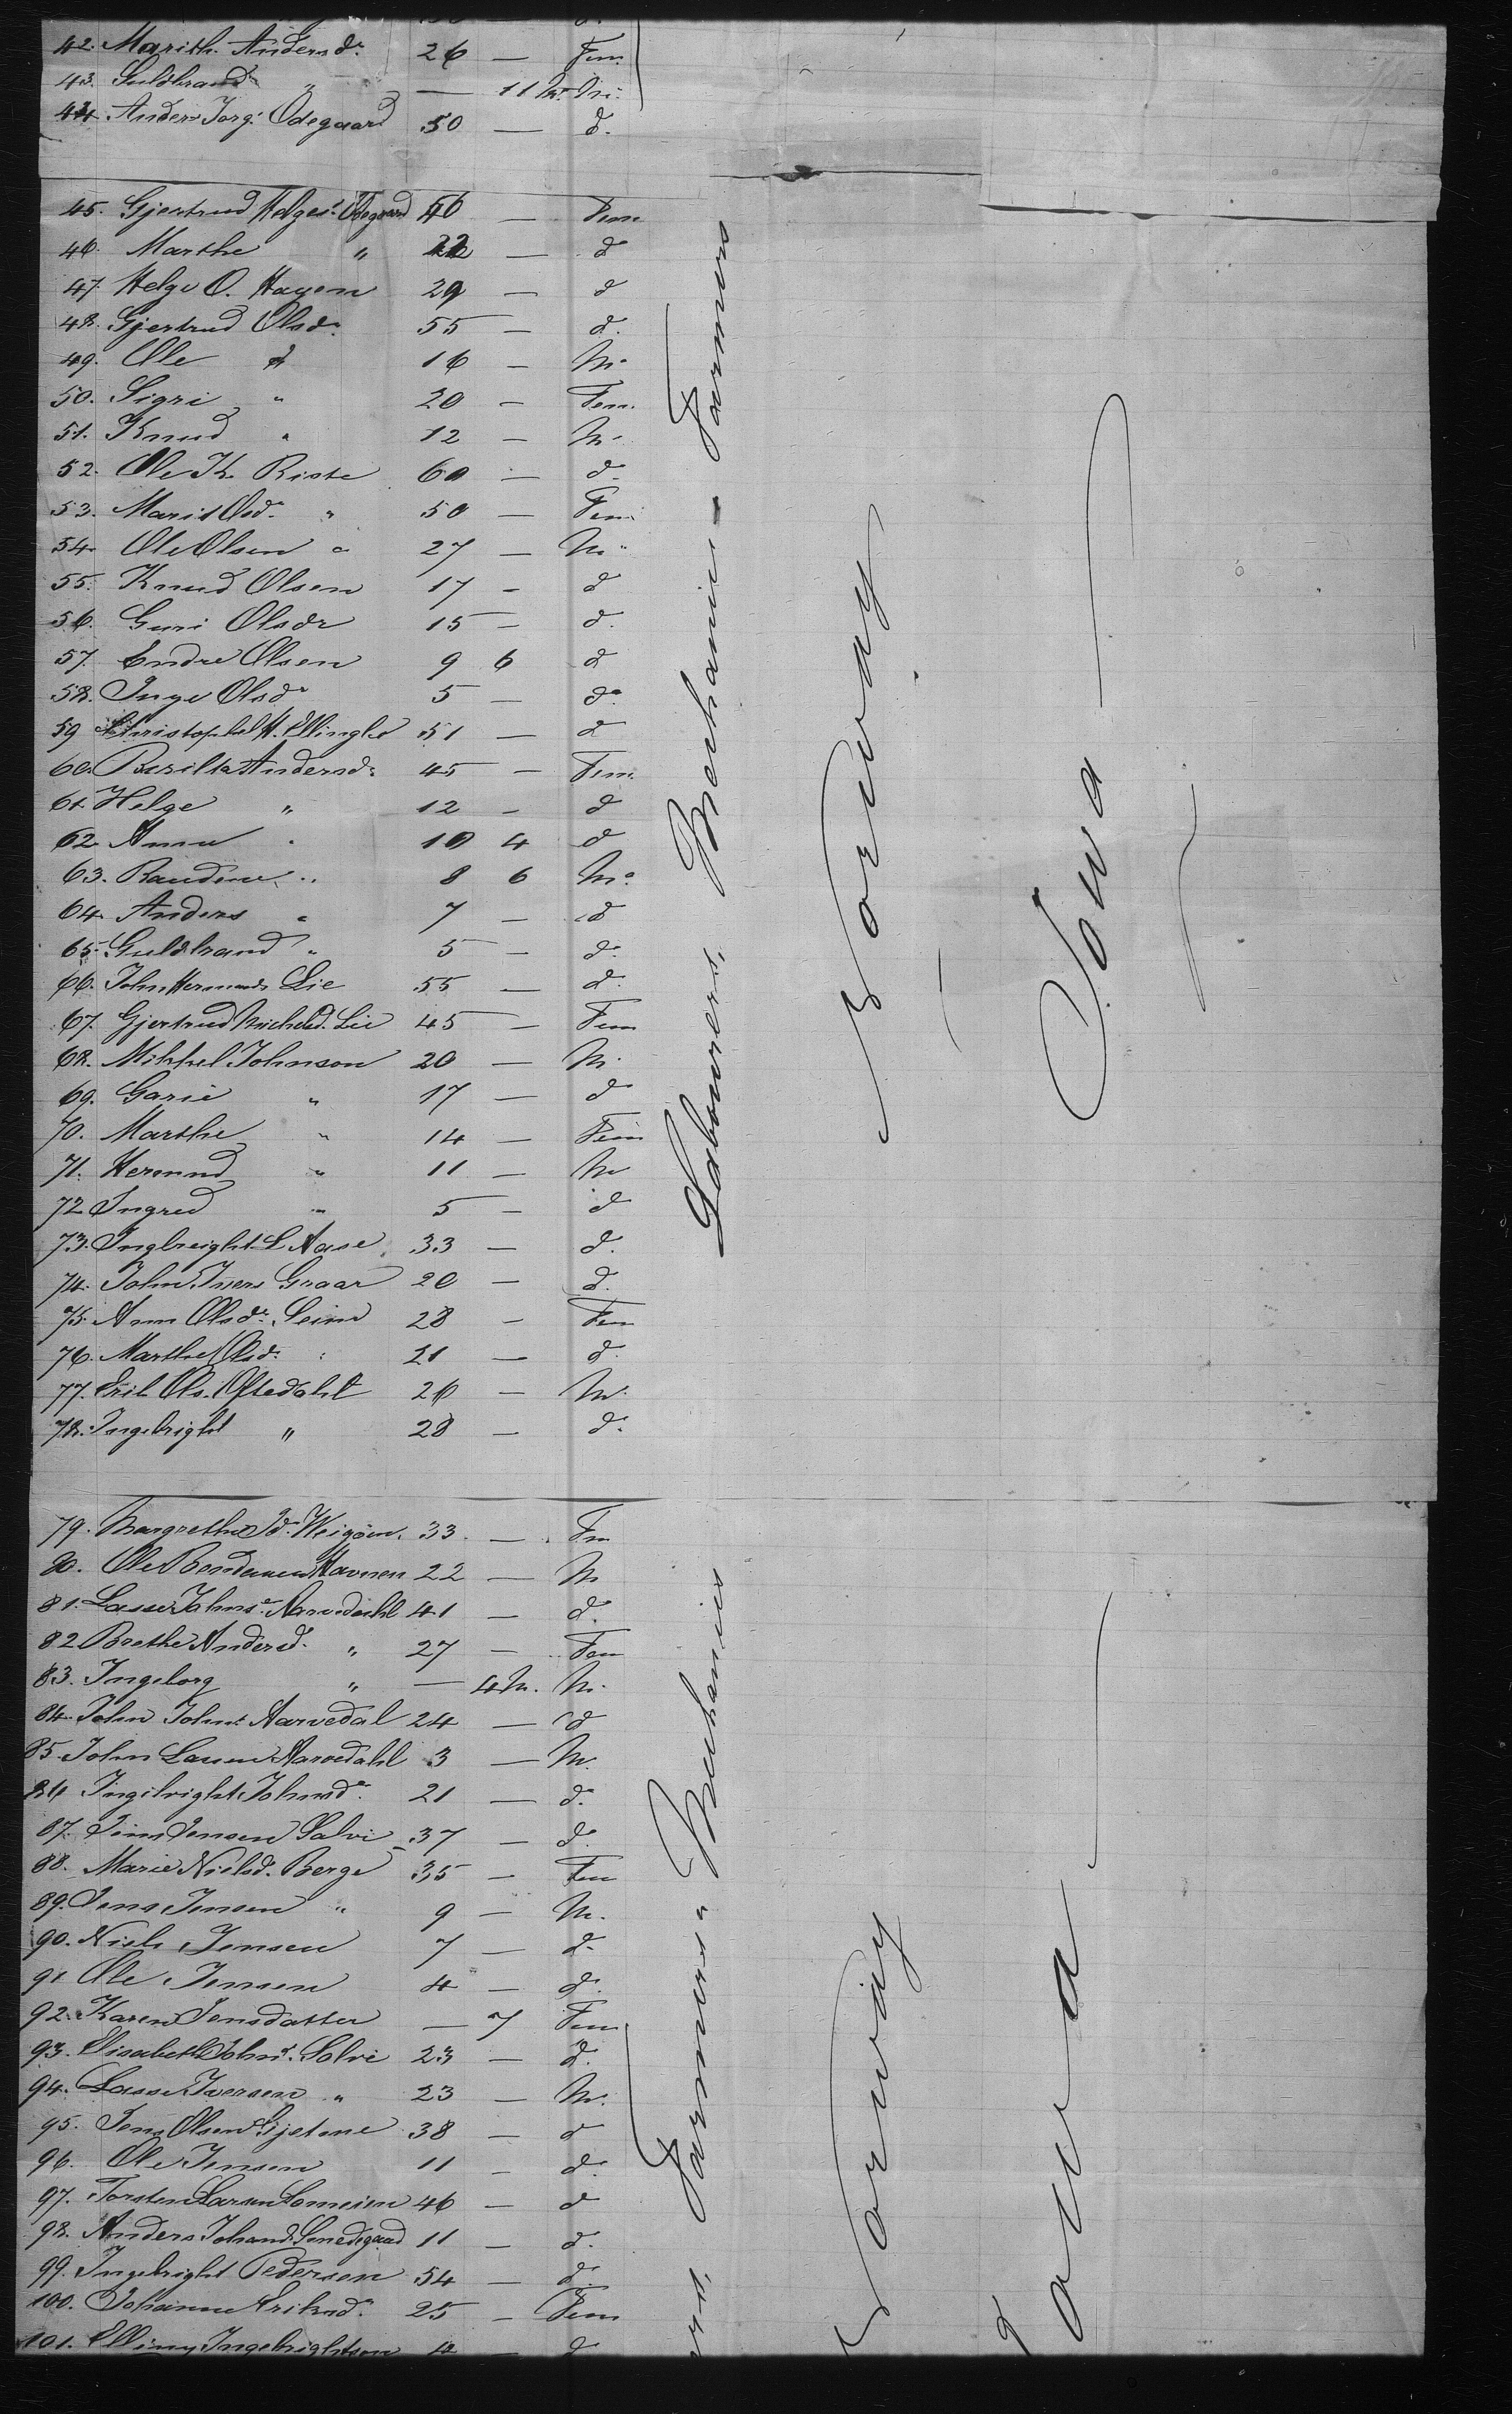 42. Marith Andersd. 26 — Fem.
43. Guldbrand " — 11 M. M.
44. Anders Torg. Odegaard 50 — d.
45. Gjertrud Helges. Odegaard 46 — Fem
46. Marthe " 22 — d
47. Helge O. Hagen 29 — d
48. Gjertrud Olsd. 55 — d.
49. Ole " 16 — M.
50. Sigri " 20 — Fem.
51. Knud " 12 — M.
52. Ole K. Riste 60 — d.
53. Marit Olsd. " 50 — Fem.
54. Ole Olsen " 27 — M.
55. Knud Olsen 17 — d
56. Guri Olsdr 15 — d.
57. Endre Olsen 9 6 d
58. Inge Olsd. 5 — d.
59 Christophel H. Ellingbo 51 — d
60. Andersd. 45 — Fem.
61. Helge " 12 — d
62. Anne " 10 4 d
63. " 8 6 M.
64. Anders " 7 — d
65. Guldbrand " 5 — d.
66. John Hermunds Lie 55 — d.
67. Gjertrud Michelsd. Lie 45 — Fem
68. Mikkel Johnson 20 — M.
69. Garie " 17 — d
70. Marthe " 14 — Fem
71. Hermund " 11 — M
72. Ingred " 5 — d
73. Ingbreight L Aase 33 — d.
74. John Ivers Graar 20 — d.
75. Ann Olsd. Seim 28 — Fem
76. Marthe Olsd. " 21 — d.
77. Erik Ols. Oftedahl 26 — M.
78. Ingebright " 28 — d.
Labourers, Mechanics — Farmers
Norway
Iowa
79. Margrethe 33 — Fm
80. Ole Havnen 22 — M
81. Lasse Johns. Aarvedahl 41 — d.
82 Brethe Andersd. " 27 — Fem
83. Ingeborg " — 4 M. M.
84. John Johns. Aarvedal 24 — d
85. John Larsen Aarvedahl 3 — M.
86 Ingebright Johnsd. 21 — d.
87. Jens Jensen Solvi 37 — d.
88. Marie Nielsd. Berge 35 — Fem
89. Jens Jensen " 9 — M.
90. Niels Jensen 7 — d.
91 Ole Jensen 4 — d.
92. Karen Jensdatter — 7 Fem
93. Elisabeth Johns. Solvi 23 — d.
94. Lasse Iversen " 23 — M.
95. Jens Olsen Gjetene 38 — d
96. Ole Jensen 11 — d.
97. Torsten Larsen 46 — d
98. Anders 11 — d.
99. Ingebright Pedersen 54 — d.
100. Johanne Eriksd. 25 — Fem
101. Elling Ingebrightson 4 — d
Farmers " Mechanics
Norway